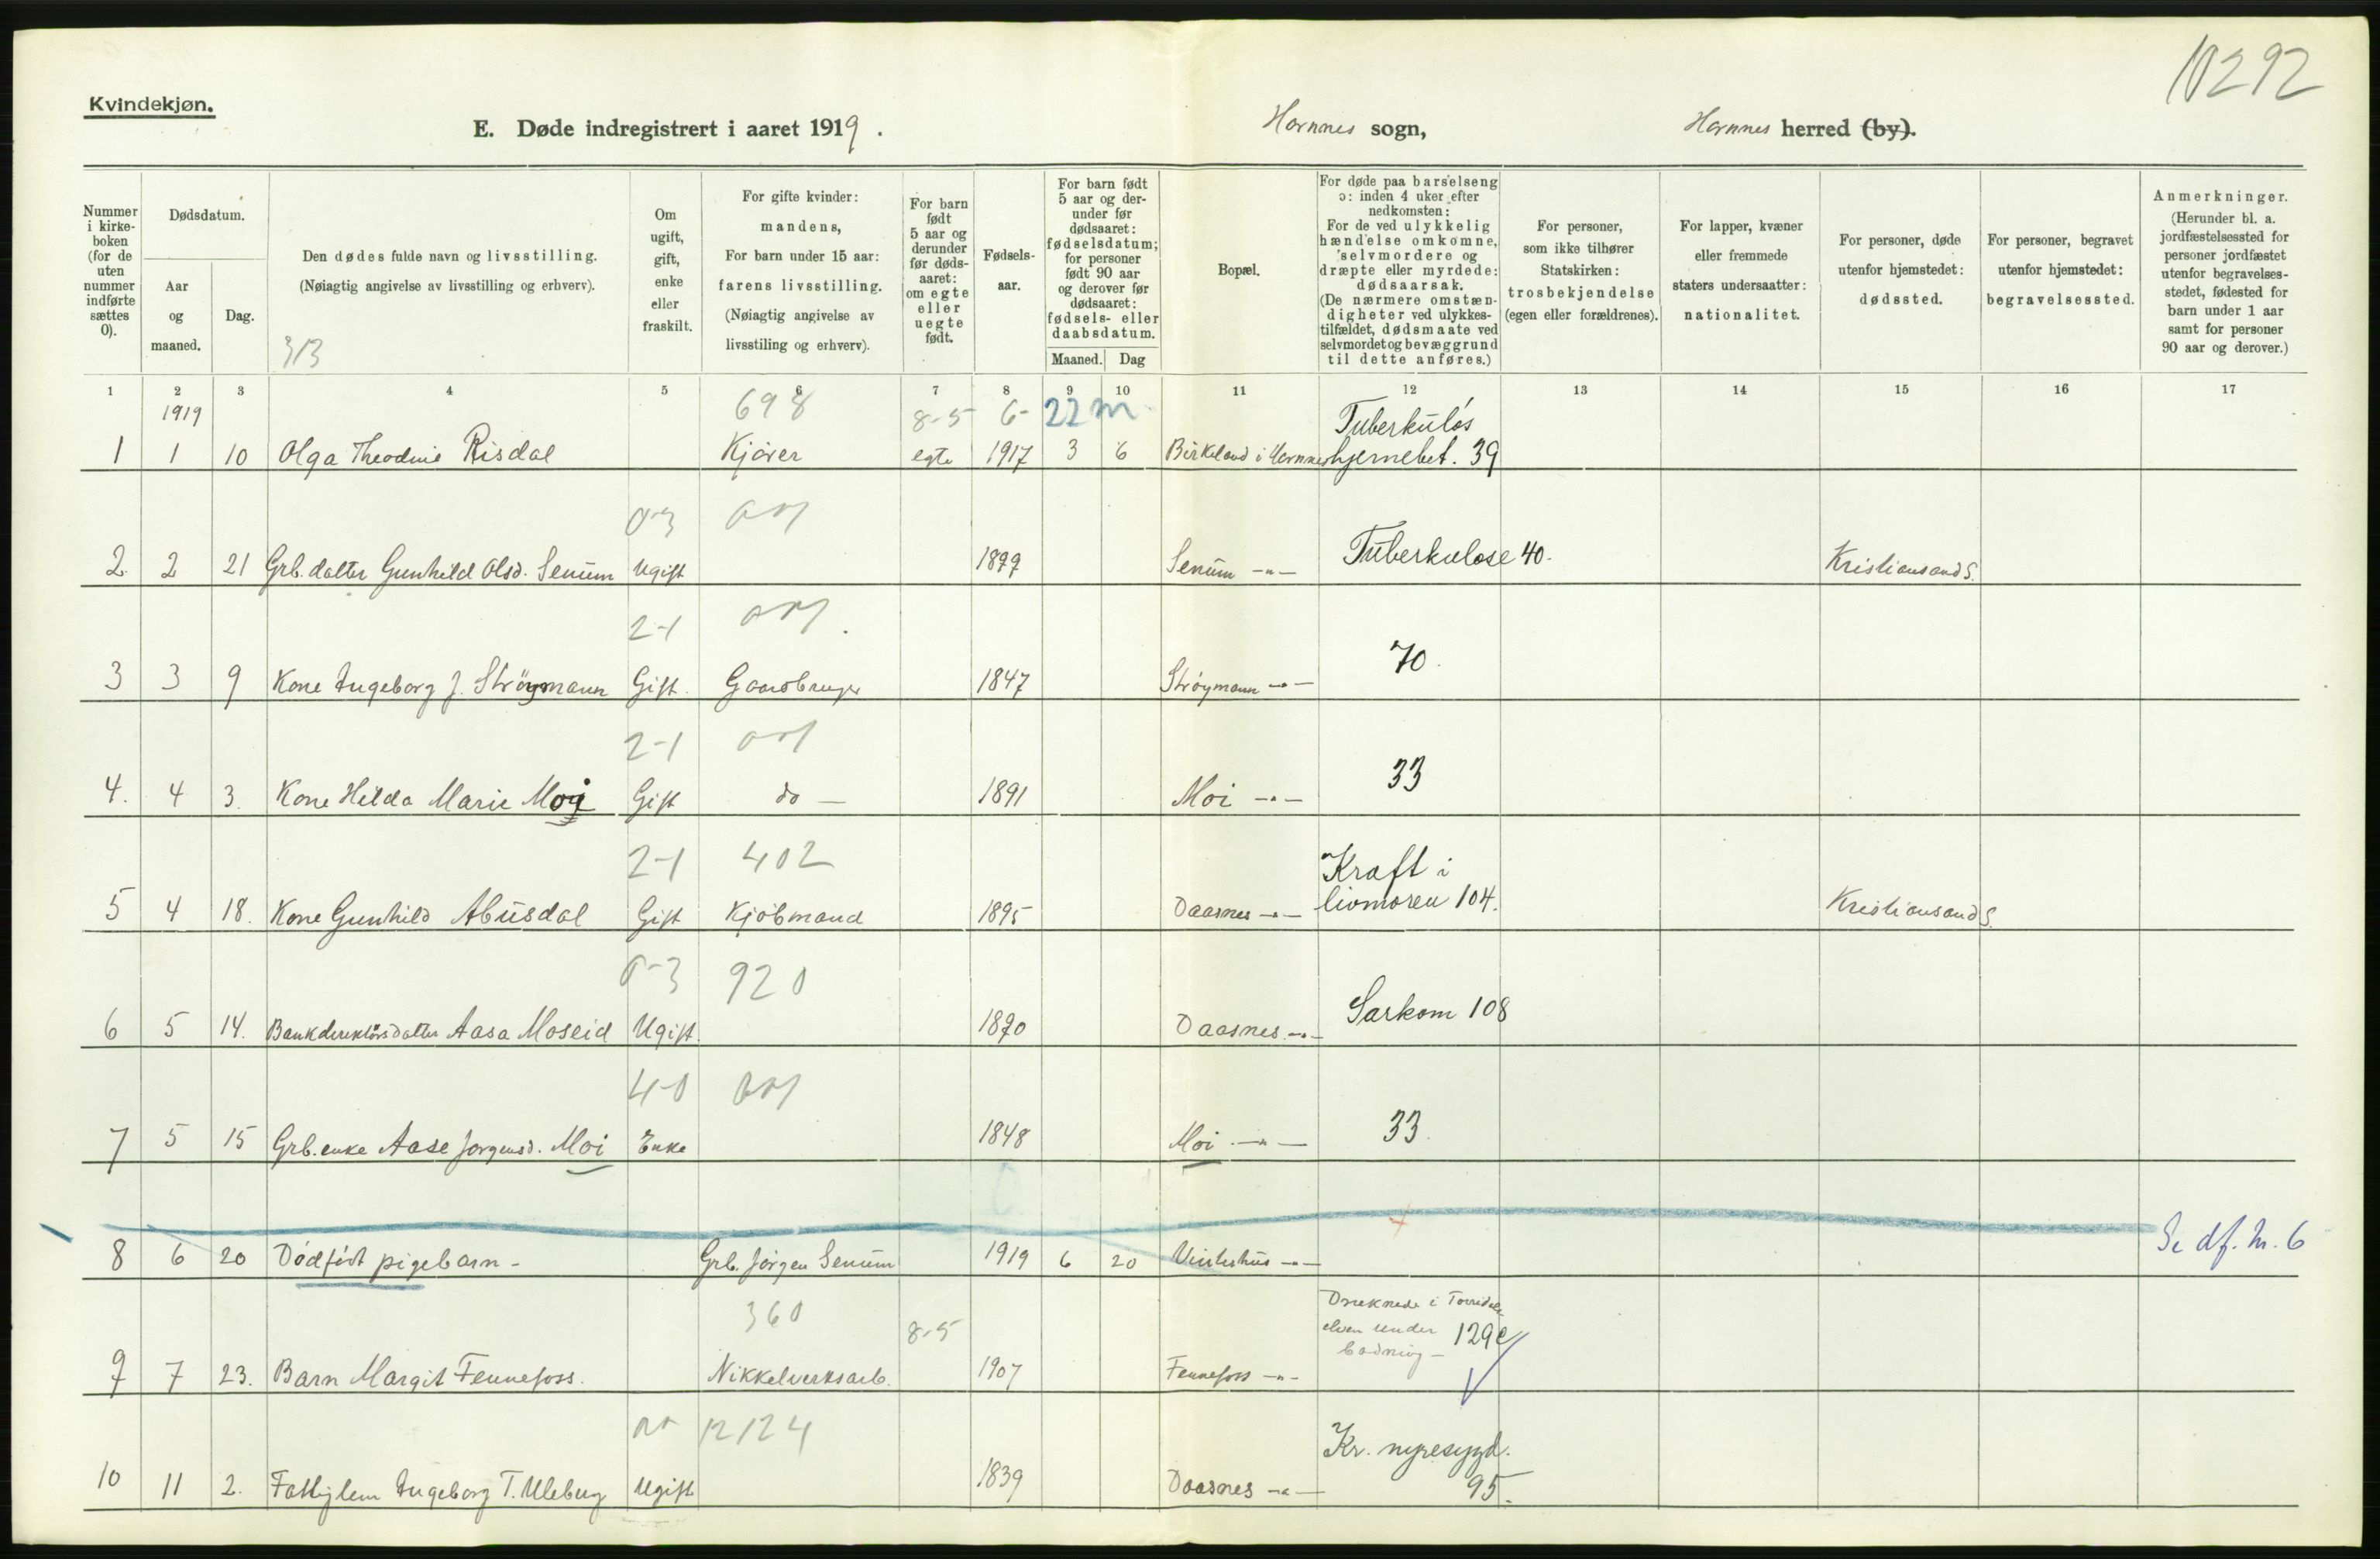 10292
Kvindekjøn.
E. Døde indregistrert i aaret 1919.
Hornnes sogn,
Hornnes herred (by).
Nummer
i kirke-
boken
(for de
uten
nummer
indførte
sættes
0).
Dødsdatum.
Aar
og
maaned.
Dag.
Den dødes fulde navn og livsstilling.
(Nøiagtig angivelse av livsstilling og erhverv).
313
Om
ugift,
gift,
enke
eller
fraskilt.
For gifte kvinder:
mandens,
For barn under 15 aar:
farens livsstilling.
(Nøiagtig angivelse av
livsstiling og erhverv).
For barn
født
5 aar og
derunder
før døds-
aaret:
om egte
eller
uegte
født.
Fødsels-
aar.
For barn født
5 aar og der-
under før
dødsaaret:
fødselsdatum;
for personer
født 90 aar
og derover før
dødsaaret:
fødsels- eller
daabsdatum.
Maaned. Dag
Bopæl.
For døde paa barselseng
ɔ: inden 4 uker efter
nedkomsten:
For de ved ulykkelig
hændelse omkomne,
selvmordere og
dræpte eller myrdede:
dødsaarsak.
(De nærmere omstæn-
digheter ved ulykkes-
tilfældet, dødsmaate ved
selvmordet og bevæggrund
til dette anføres.)
For personer,
som ikke tilhører
Statskirken:
trosbekjendelse
(egen eller forældrenes).
For lapper, kvæner
eller fremmede
staters undersaatter:
nationalitet.
For personer, døde
utenfor hjemstedet:
dødssted.
For personer, begravet
utenfor hjemstedet:
begravelsessted.
Anmerkninger.
(Herunder bl. a.
jordfæstelsessted for
personer jordfæstet
utenfor begravelses-
stedet, fødested for
barn under 1 aar
samt for personer
90 aar og derover.)
1 2 3 4 5 6 7 8 9 10 11 12 13 14 15 16 17
1919 698 8-5 6- 22 m Tuberkuløs
1 1 10 Olga Theodine Risdal Kjører egte 1917 3 6 Birkeland i Hornnes hjernebet. 39
0-3
2 2 21 Grb.datter Gunhild Olsd. Senum Ugift 1899 Senum -"- Tuberkulose 40. Kristiansand S.
2-1 70.
3 3 9 Kone Ingeborg J. Strøymann Gift. Gaardbruger 1847 Strøymann -"-
2-1 33
4. 4 3. Kone Hilda Marie Moi Gift do - 1891 Moi -"-
2-1 402 Kræft i
5 4 18. Kone Gunhild Abusdal Gift Kjøbmand 1895 Daasnes -"- livmoren 104. Kristiansand S.
0-3 920 Sarkom 108
6 5 14. Bankdirektørsdatter Aasa Moseid Ugift. 1890 Daasnes -"-
4-0 33.
7 5 15 Grb.enke Aase Jørgensd. Moi Enke 1848 Moi -"-
8 6 20 Dødfødt pigebarn - Grb. Jørgen Senum 1919 6 20 -"- Se df. nr. 6
360 8-5 Druknede i Torridals
elven under 129c
badning -
9 7 23. Barn Margit Fennefoss. Nikkelverksarb. 1907 Fennefoss -"-
12124 Kr. nyresygd.
10 11 2. Fattiglem Ingeborg T. Uleberg Ugift 1839 Daasnes -"- 95.